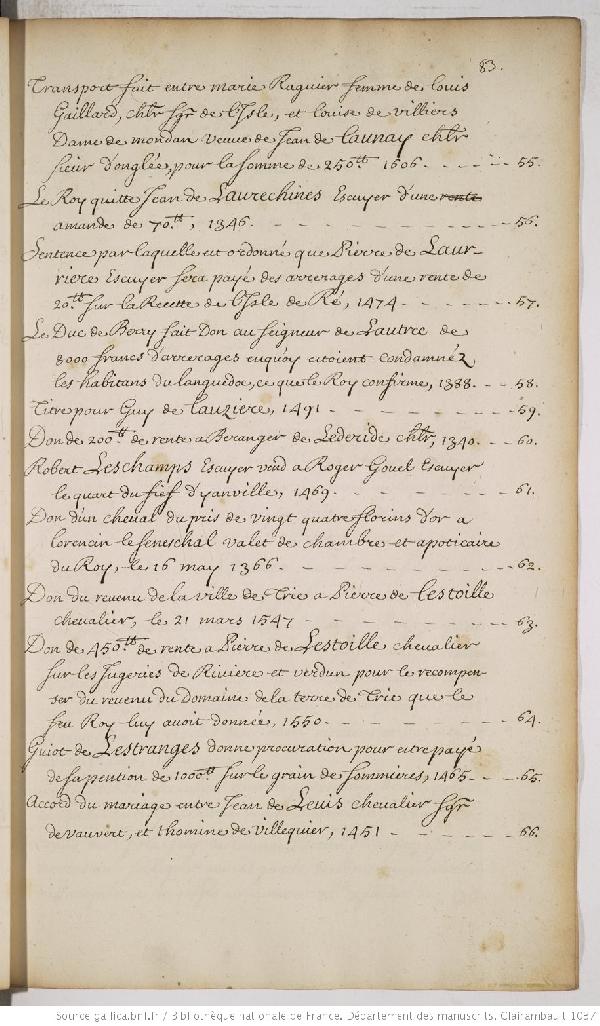 83.
Transport fait entre marie Raguier femme de louis
Gaillard, chlr sgr de l'Isle, et louise de villiers
Dame de mondan veuve de Jean de Launay chlr
sieur d'onglée, pour la somme de 250tt 1606. - - - - - 55.
Le Roy quitte Jean de Laurechines Escuyer d'une rente
amande de 70.tt, 1346. - - - - - - - - 56.
Sentence par laquelle est ordonné que Pierre de Laur-
riere Escuyer sera payé des arrerages d'une rente de
20tt sur la Recette de l'Isle de Ré, 1474 - - - - - - 57.
Le Duc de Berry fait Don au seigneur de Lautrec de
8000 francs d'arrerages enquoy estoient condamnéz
les habitans du languedoc, ce que le Roy confirme, 1388. - - 58.
Titre pour Guy de Lauziere, 1491 - - - - - - - 59.
Don de 200tt de rente a Beranger de Lederide chlr, 1340. - - 60.
Robert Leschamps Escuyer vend a Roger Gouel Escuyer
le quart du fief d'yanville, 1469. - - - - - - 61.
Don d'un cheval du pris de vingt quatre florins d'or a
lorencin le seneschal valet de chambre et apoticaire
du Roy, le 16 may 1366. - - - - - - - 62.
Don du revenu de la ville de Trie a Pierre de Lestoille
chevalier, le 21 mars 1547 - - - - - - - 63.
Don de 450tt de rente a Pierre de Lestoille chevalier
sur les Jugeries de Riviere et verdun pour le recompen-
ser du revenu du Domaine de la terre de Trie que le
feu Roy luy avoit donnée, 1550. - - - - - - - 64.
Guiot de Lestranges donne procuration pour estre payé
de sa pention de 1000tt sur le grain de Sommieres, 1465 - - 65.
Accord du mariage entre Jean de Leuis chevalier sgr
de vauvert, et thomine de villequier, 1451 - - - - - 66.